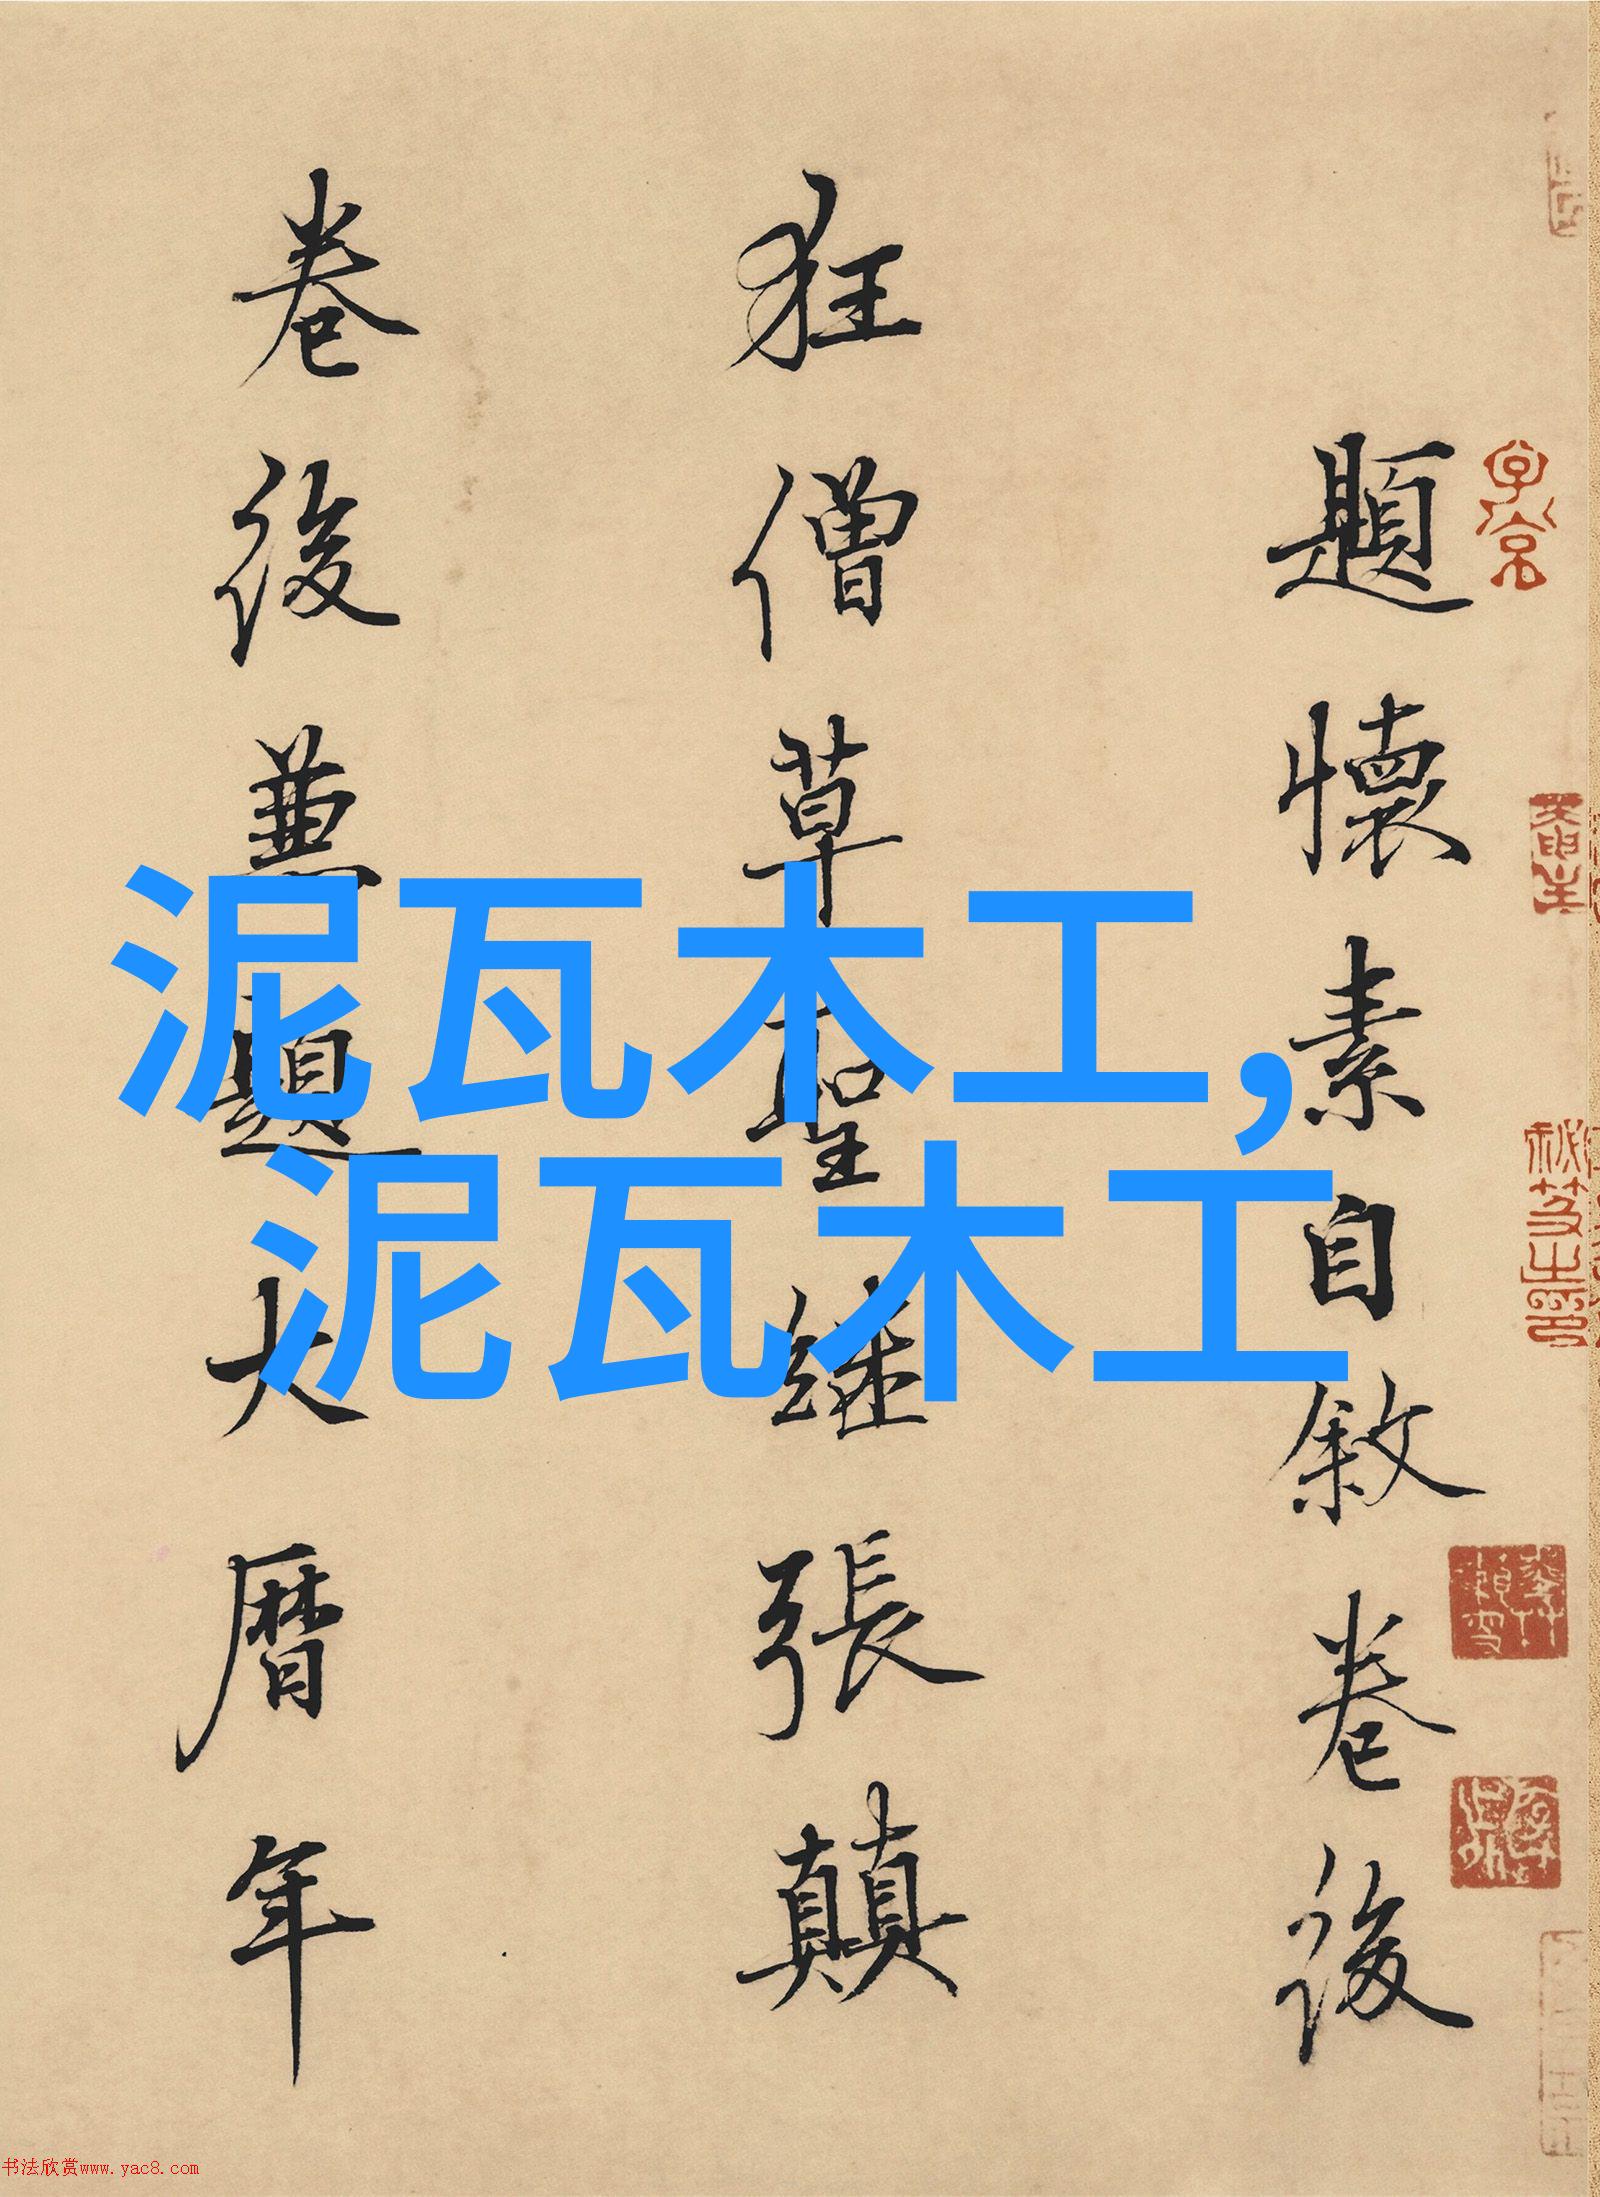 題懷素自敘卷後
狂僧草聖繼張顛
卷後兼題大曆年
泥瓦木工,
泥瓦木工
书法欣赏www.yac8.com